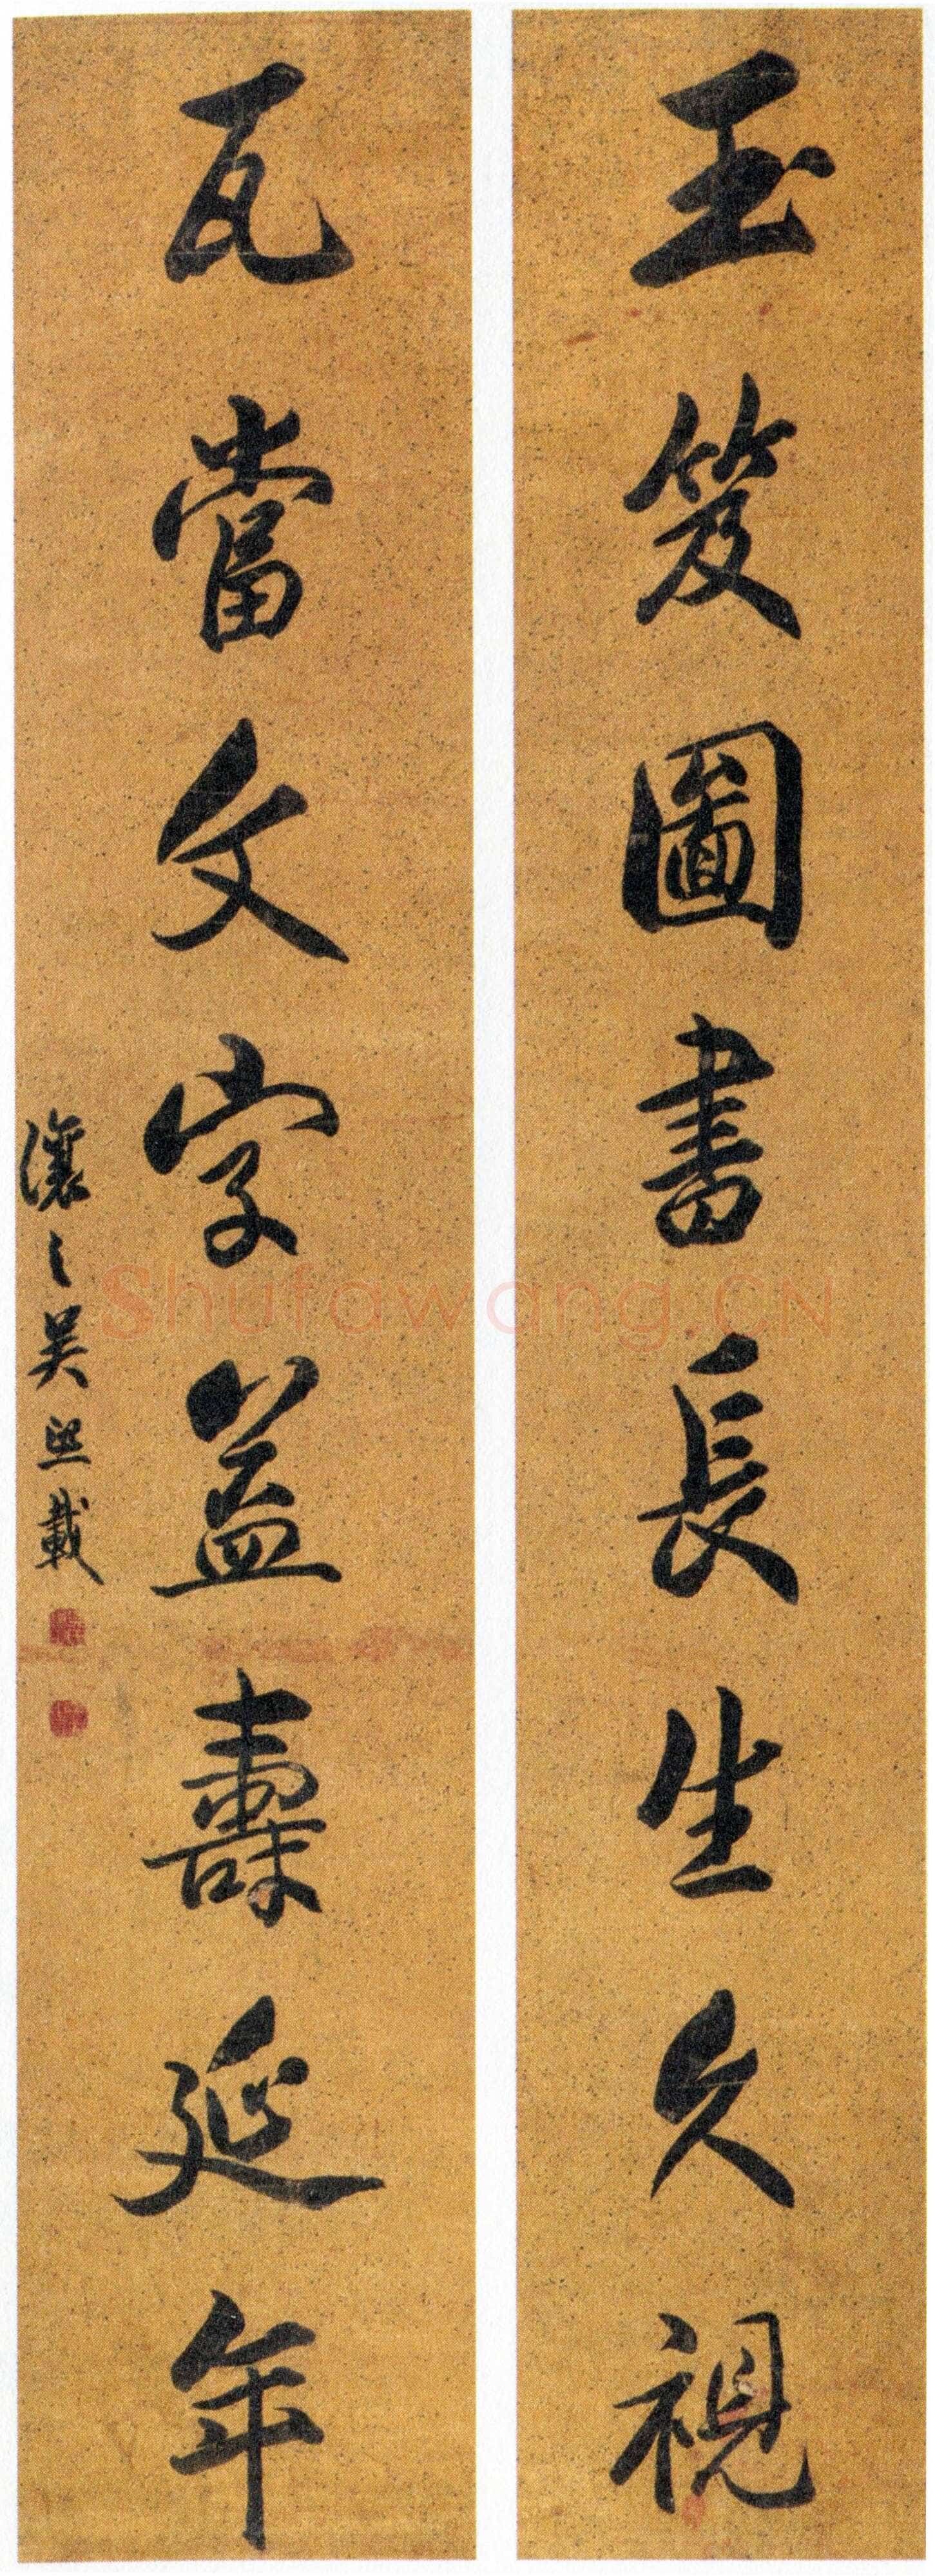 玉笈圖書長生久視
瓦當文字益壽延年
讓之吳熙載
Shufawang.CN